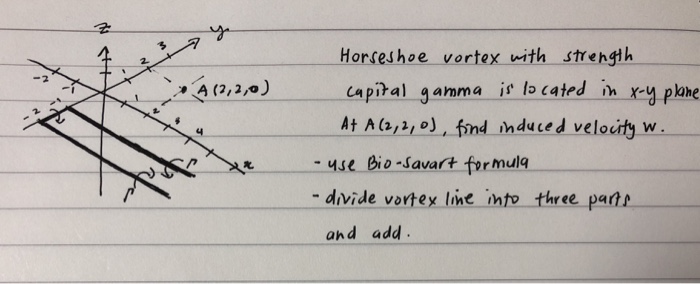 z
y
3
2
1
-2
-1
A (2,2,0)
-2
-1
2
4
x
Γ
Γ
Horseshoe vortex with strength
capital gamma is located in x-y plane
At A(2,2,0), find induced velocity w.
- use Bio-Savart formula
- divide vortex line into three parts
and add.